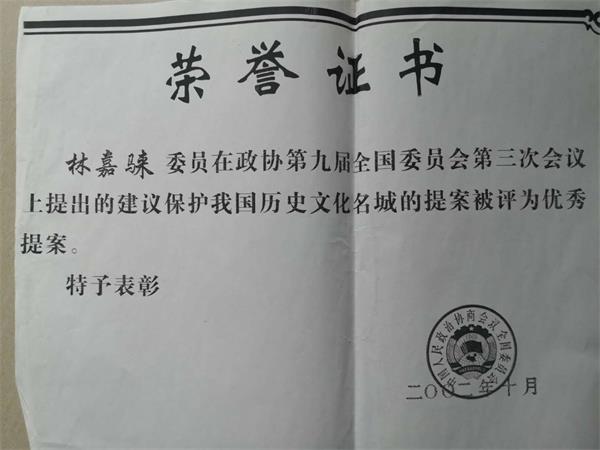 荣誉证书
林嘉騋 委员在政协第九届全国委员会第三次会议
上提出的建议保护我国历史文化名城的提案被评为优秀
提案。
特予表彰
中国人民政治协商会议全国委员会
二〇〇二年十月